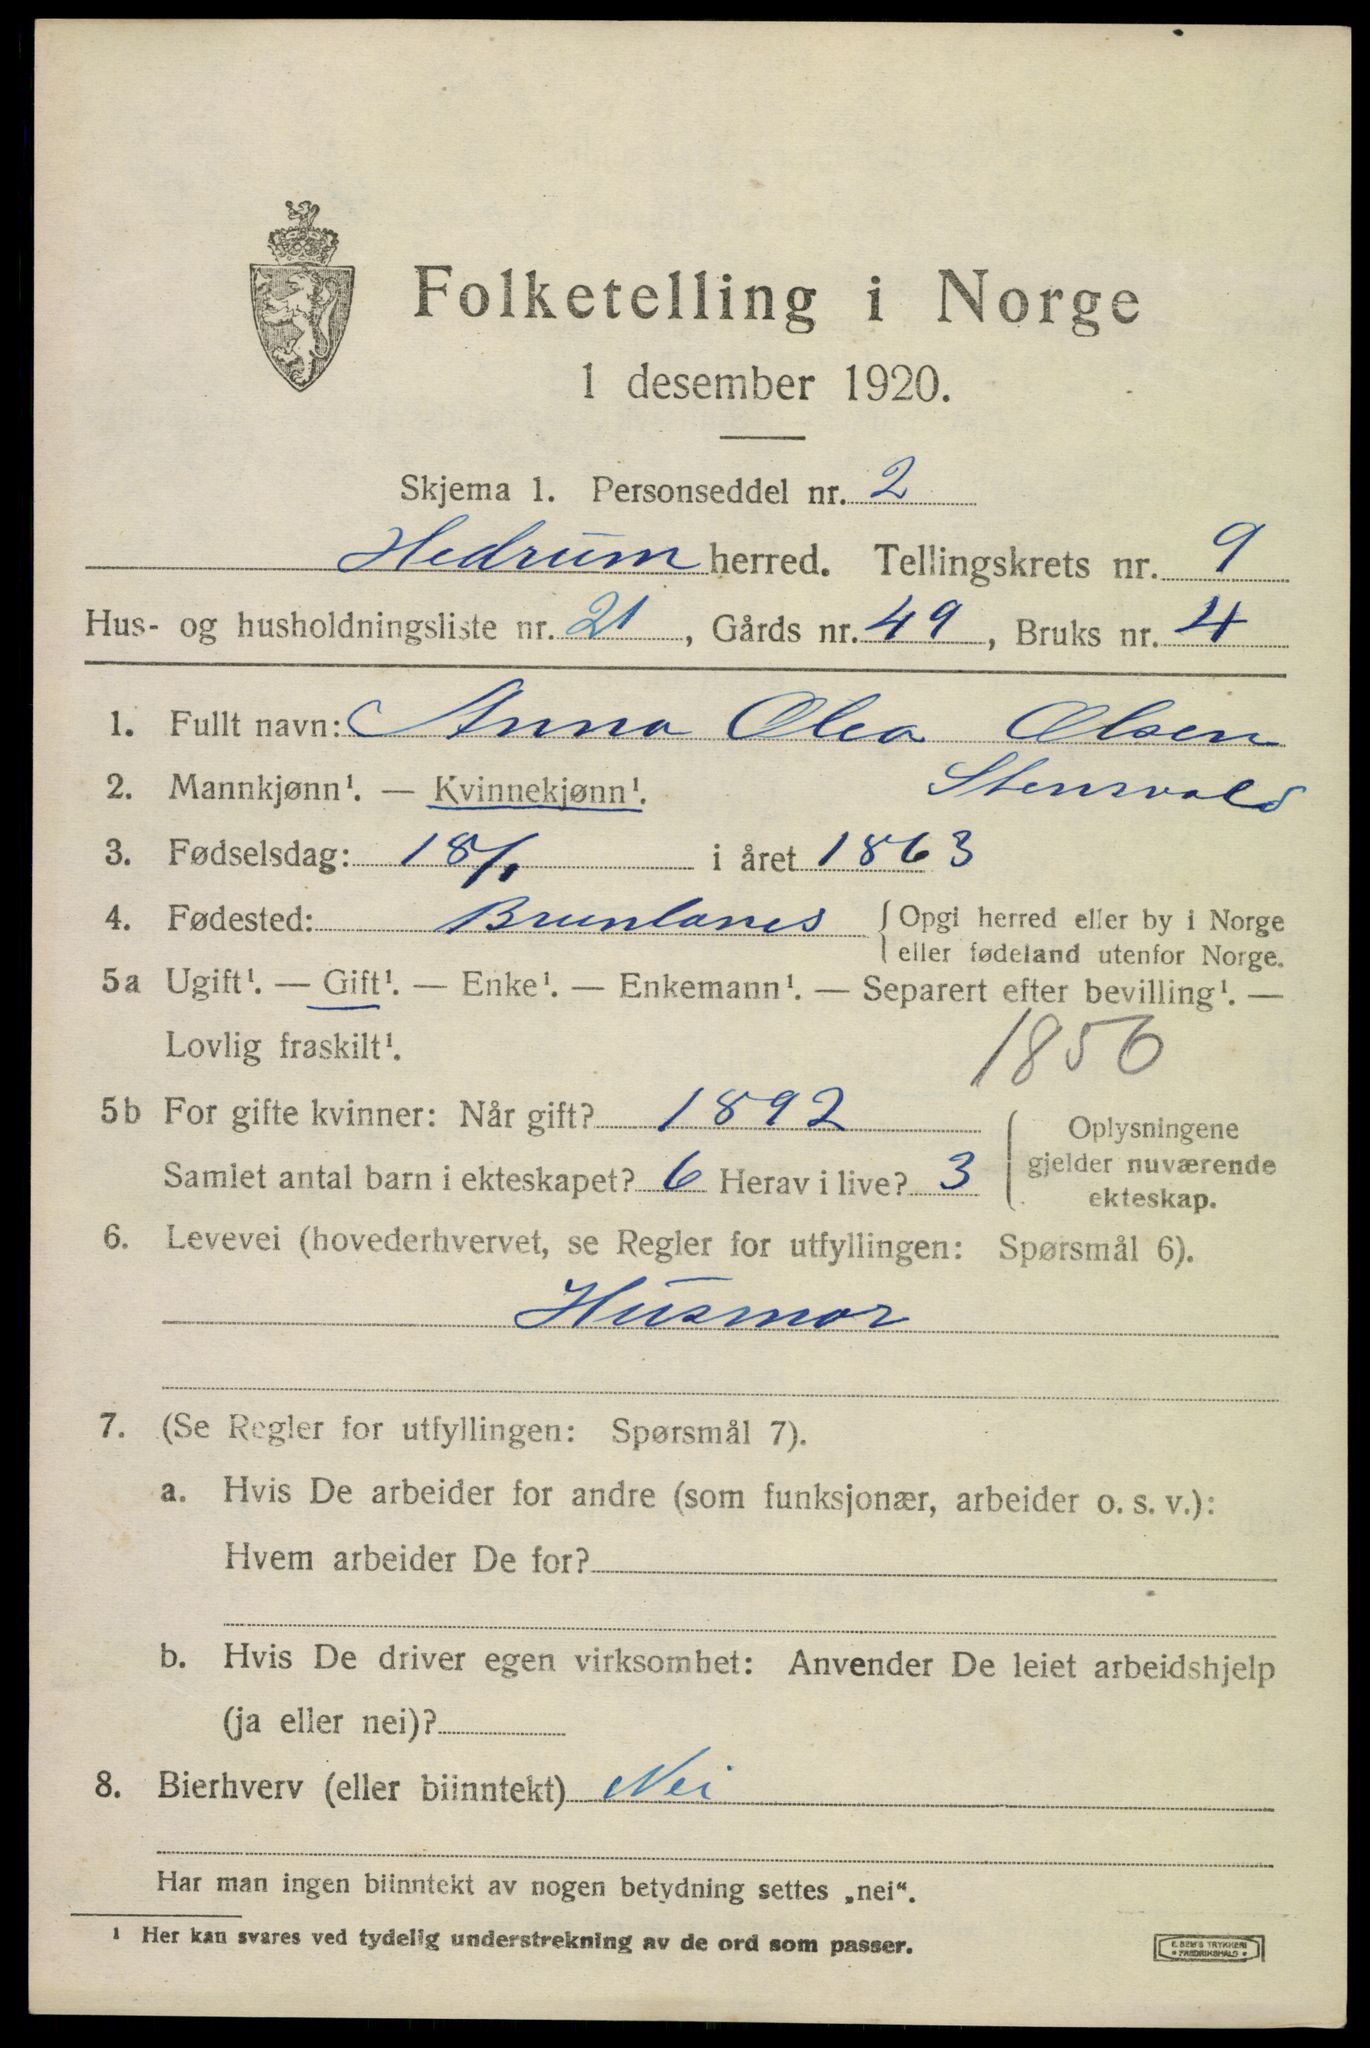 Folketelling i Norge
1 desember 1920.
Skjema 1. Personseddel nr. 2
Hedrum herred. Tellingskrets nr. 9
Hus- og husholdningsliste nr. 21, Gårds nr. 49, Bruks nr. 4
1. Fullt navn: Anna Olea Olsen
Stensvold
2. Mannkjønn¹. — Kvinnekjønn¹.
3. Fødselsdag: 18/1 i året 1863
4. Fødested: Brunlanes { Opgi herred eller by i Norge
eller fødeland utenfor Norge.
5a Ugift¹. — Gift¹. — Enke¹. — Enkemann¹. — Separert efter bevilling¹. —
Lovlig fraskilt¹.
1856
5b For gifte kvinner: Når gift? 1892
Samlet antal barn i ekteskapet? 6 Herav i live? 3
Oplysningene
gjelder nuværende
ekteskap.
6. Levevei (hovederhvervet, se Regler for utfyllingen: Spørsmål 6).
Husmor
7. (Se Regler for utfyllingen: Spørsmål 7).
a. Hvis De arbeider for andre (som funksjonær, arbeider o. s. v.):
Hvem arbeider De for?
b. Hvis De driver egen virksomhet: Anvender De leiet arbeidshjelp
(ja eller nei)?
8. Bierhverv (eller biinntekt) Nei
Har man ingen biinntekt av nogen betydning settes „nei“.
¹ Her kan svares ved tydelig understrekning av de ord som passer.
E. SEM'S TRYKKERI
• FREDRIKSHALD •